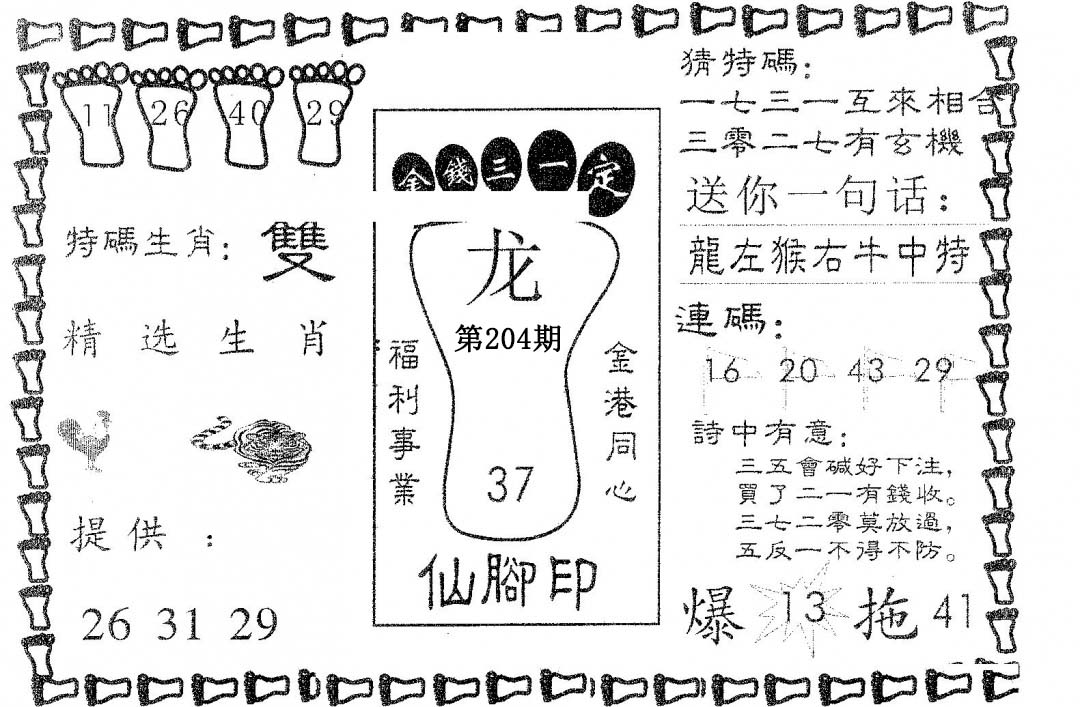 11 26 40 29
特碼生肖：雙
精选生肖
提供：
26 31 29
金錢三一定
龙
第204期
福利事業
金港同心
37
仙腳印
猜特碼：
一七三一互來相合
三零二七有玄機
送你一句话：
龍左猴右牛中特
連碼：
16 20 43 29
詩中有意：
三五會碱好下注，
買了二一有錢收。
三七二零莫放過，
五反一不得不防。
爆 13 拖 41